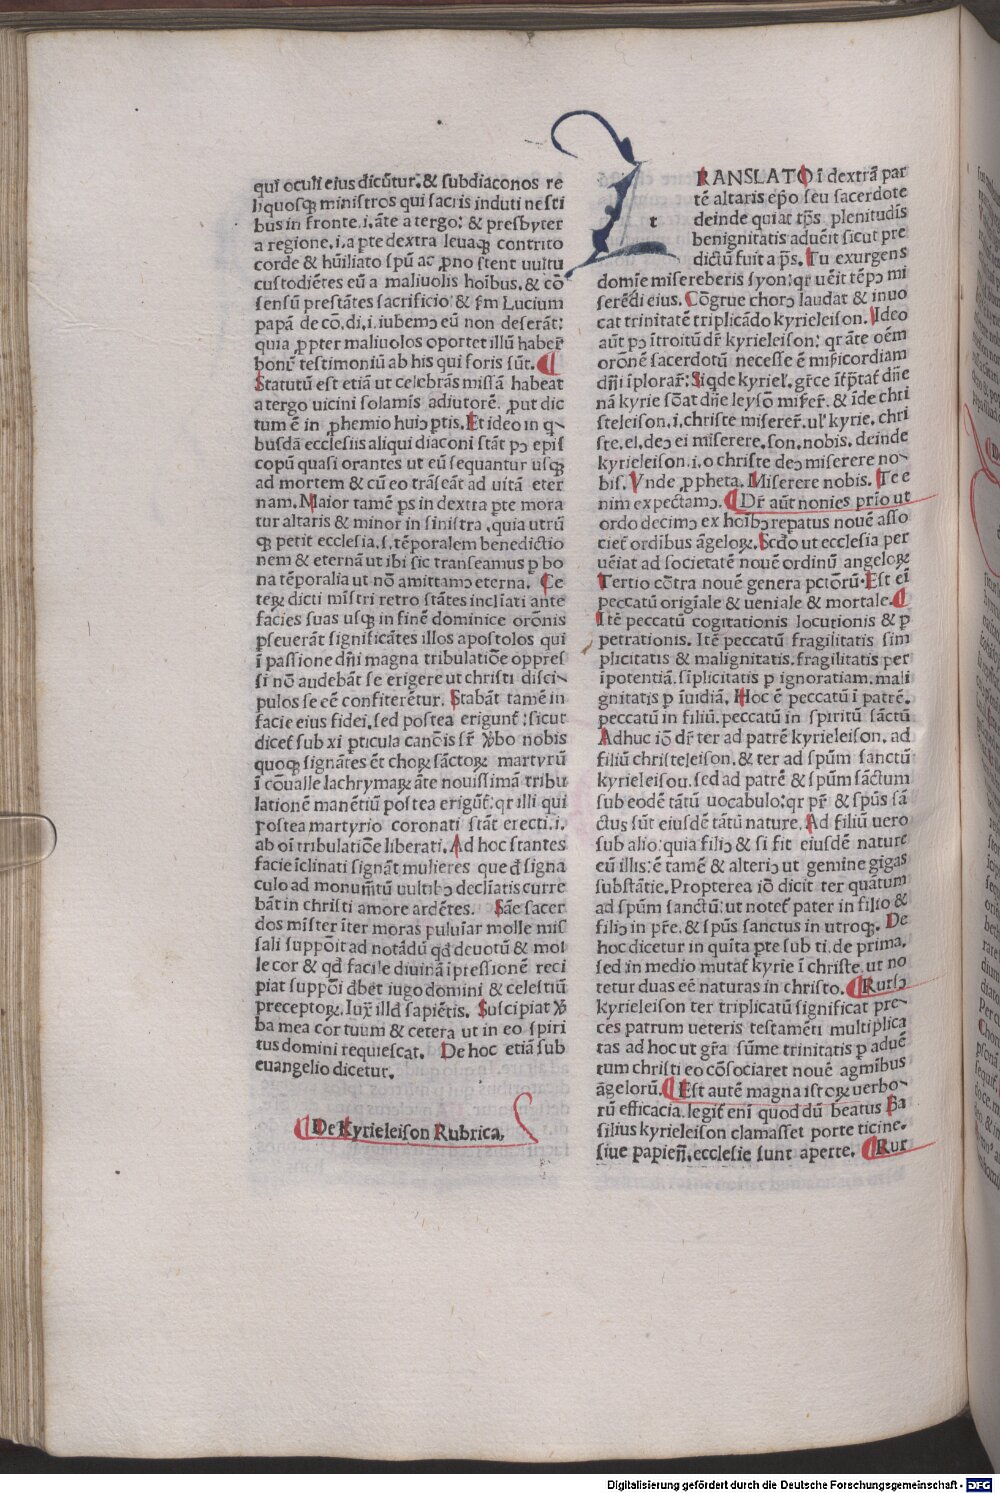 qui oculi eius dicūtur. & subdiaconos re
liquosqꝫ ministros qui sacris induti uesti
bus in fronte.i.āte a tergo: & presbyter
a regione.i.a pte dextra leuaqꝫ contrito
corde & hūiliato spū ac ꝓno stent uultu
custodiētes eū a maliuolis hoībus. & cō
sensū prestātes sacrificio & ſm Lucium
papā de cō.di.i.iubemꝰ eū non deserāt:
quia ꝓpter maliuolos oportet illū haber̄
bonū testimoniū ab his qui foris sūt. ¶
Statutū est etiā ut celebrās missā habeat
a tergo uicini solamīs adiutorē. ꝓut dic
tum ē in ꝓhemio huiꝰ ptis. Et ideo in q
busdā ecclesiis aliqui diaconi stāt pꝰ epis
copū quasi orantes ut eū sequantur usqꝫ
ad mortem & cū eo trāseāt ad uitā eter
nam. Maior tamē ps in dextra pte mora
tur altaris & minor in sinistra .quia utrū
qꝫ petit ecclesia.s.tēporalem benedictio
nem & eternā ut ibi sic transeamus p bo
na tēporalia ut nō amittamꝰ eterna. Ce
teꝝ dicti mīstri retro stātes inclīati ante
facies suas usqꝫ in finē dominice orōnis
pseuerāt significātes illos apostolos qui
ī passione dñi magna tribulatiōe oppres
si nō audebāt se erigere ut christi disci-
pulos se eē confiterētur. Stabāt tamē in
facie eius fidei.sed postea erigunt̄ : sicut
dicet̄ sub xi pticula canōis sr̄ ꝟbo nobis
quoqꝫ signātes ēt choꝝ sāctoꝝ martyrū
ī cōualle lachrymaꝝ āte nouissimā tribu
lationē manētiū postea erigūt̄: qr illi qui
postea martyrio coronati stāt erecti.i.
ab oī tribulatiōe liberati. Ad hoc stantes
facie īclinati signāt mulieres que đ signa
culo ad monumētū uultibꝰ declīatis curre
bāt in christi amore ardētes. Sāe sacer
dos mīster īter moras puluīar molle mis
sali suppōit ad notādū qđ deuotū & mol
le cor & qđ facile diuinā īpressionē reci
piat suppōi đbet iugo domini & celestiū
preceptoꝝ. Iux̄ illđ sapiētis. Suscipiat ꝟ
ba mea cor tuum & cetera ut in eo spiri
tus domini requiescat. De hoc etiā sub
euangelio dicetur.
¶ De kyrieleison Rubrica.
t RANSLATO ī dextrā par
tē altaris epō seu sacerdote
deinde quiat tps̄ plenitudīs
benignitatis aduēit sicut pre
dictū fuit a ps̄. Tu exurgens
domīe misereberis syon: qr uēit tēpꝰ mi
serēđi eius. Cōgrue chorꝰ laudat & inuo
cat trinitatē triplicādo kyrieleison. Ideo
aūt pꝰ ītroitū dr̄ kyrieleison: qr āte oēm
orōnē sacerdotū necesse ē mīsicordiam
dñi īplorar̄: Siqde kyriel. gr̄ce ītp̄tat̄ dñe
nā kyrie sōat dñe leysō misrer̄. & īde chri
steleison.i.christe miserer̄. ul' kyrie. chri
ste.el. deꝰ ei miserere.son.nobis. deinde
kyrieleison.i.o christe deꝰ miserere no-
bis. Vnde ꝓpheta. Miserere nobis. Te e
nim expectamꝰ. ¶ Dr̄ aūt nonies prīo ut
ordo decimꝰ ex hoībꝰ repatus nouē asso
ciet̄ ordibus āgeloꝝ. Scđo ut ecclesia per
uēiat ad societatē nouē ordinū angeloꝝ
Tertio cōtra nouē genera pctōrū. Est eī
peccatū originale & ueniale & mortale. ¶
Itē peccatū cogitationis locutionis & p
petrationis. Itē peccatū fragilitatis sim
plicitatis & malignitatis. fragilitatis per
īpotentiā. sīplicitatis p ignoratiam. mali
gnitatis p īuidiā. Hoc ē peccatū ī patrē.
peccatū in filiū. peccatū in spiritū sāctū
Adhuc iō dr̄ ter ad patrē kyrieleison. ad
filiū christeleison. & ter ad spūm sanctū
kyrieleisou. sed ad patrē & spūm sāctum
sub eodē tātū uocabulo: qr pr̄ & spūs sā
ctus sūt eiusdē tātū nature. Ad filiū uero
sub alio: quia filiꝰ & si fit eiusdē nature
eū illis: ē tamē & alteriꝰ ut gemine gigas
substātie. Propterea iō dicit ter quatum
ad spūm sanctū: ut notet̄ pater in filio &
filiꝰ in pr̄e. & spūs sanctus in utroqꝫ. De
hoc dicetur in quīta pte sub ti. de prima.
sed in medio mutat̄ kyrie ī christe. ut no
tetur duas eē naturas in christo. ¶ Rursꝰ
kyrieleison ter triplicatū significat pre-
ces patrum ueteris testamēti multiplica
tas ad hoc ut gr̄a sūme trinitatis p aduē
tum christi eo cōsociaret nouē agmībus
āgelorū. ¶ Est autē magna istoꝝ uerbo-
rū efficacia. legit̄ enī quod dū beatus Ba
silius kyrieleison clamasset porte ticine.
siue papieñ. ecclesie sunt aperte. ¶ Rur
Digitalisierung gefördert durch die Deutsche Forschungsgemeinschaft - DFG